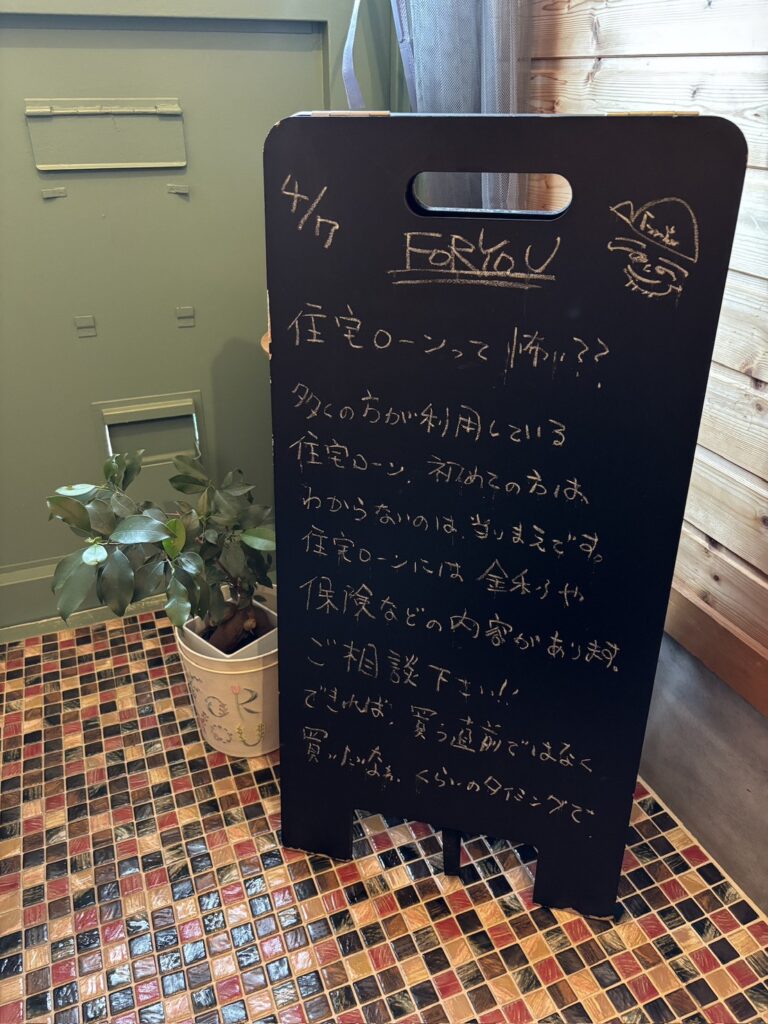 4/7
FORYOU
住宅ローンって怖い??
多くの方が利用している
住宅ローン、初めての方は、
わからないのは、当りまえです。
住宅ローンには金利や、
保険などの内容があります。
ご相談下さい!!
できれば、買う直前ではなく
買いたいなぁ、くらいのタイミングで
FOR
YOU